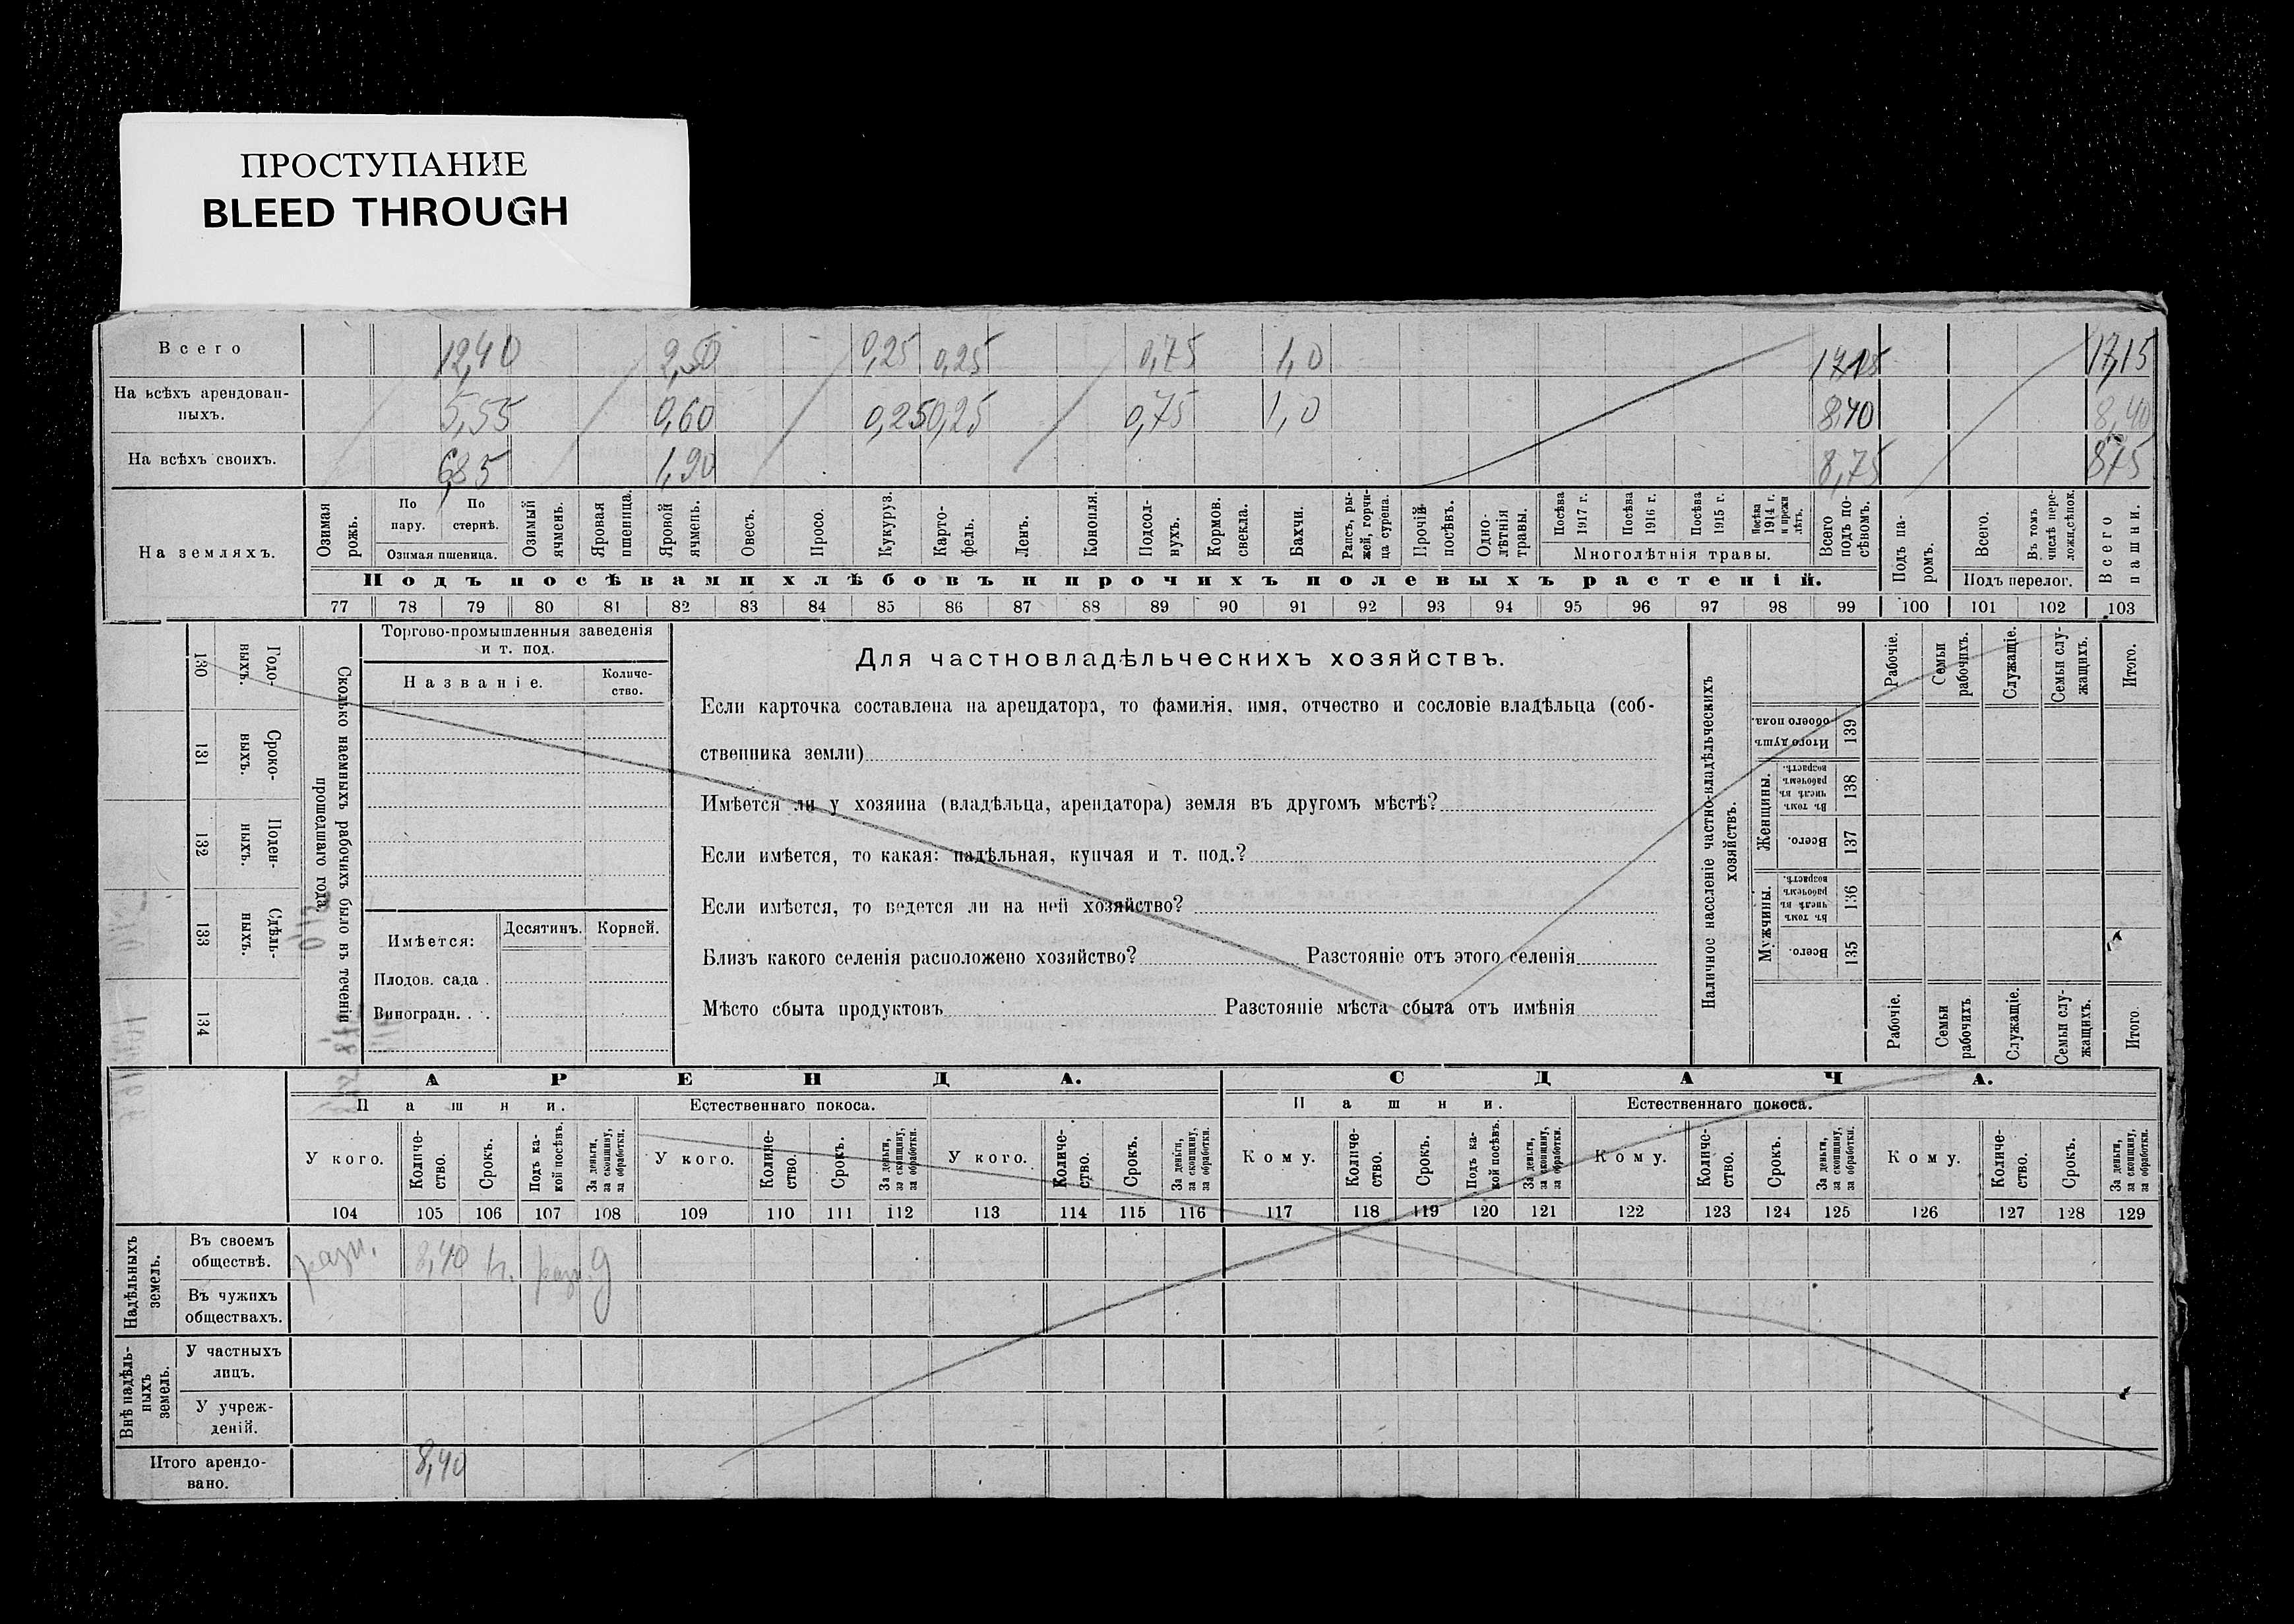 ПРОСТУПАНИЕ
BLEED THROUGH
Всего 12,40 2,50 0,25 0,25 0,75 1,0 17,15 17,15
На всѣхъ арендован-
ныхъ. 5,55 0,60 0,25 0,25 0,75 1,0 8,40 8,40
На всѣхъ своихъ. 6,85 1,90 8,75 8,75
На земляхъ.
Озимая рожь.
По пару.
По стернѣ.
Озимая пшеница.
Озимый ячмень.
Яровая пшеница.
Яровой ячмень.
Овесъ.
Просо.
Кукуруз.
Карто-
фель.
Ленъ.
Конопля.
Подсол-
нухъ.
Кормов. свекла.
Бахчи.
Рапсъ, ры-
жей, горчи-
ца сурепа.
Прочій посѣвъ.
Одно-
лѣтнія травы.
Посѣва 1917 г.
Посѣва 1916 г.
Посѣва 1915 г.
Посѣва 1914 г. и прежн лѣтъ.
Многолѣтнія травы.
Всего подъ по-
сѣвомъ.
Подъ па-
ромъ.
Всего.
Въ томъ числѣ пере-
ложн.сѣнок.
Подъ перелог.
Всего пашни.
Подъ посѣвами хлѣбовъ и прочихъ полевыхъ растеній.
77 78 79 80 81 82 83 84 85 86 87 88 89 90 91 92 93 94 95 96 97 98 99 100 101 102 103
130 Годо-
выхъ.
131 Сроко-
выхъ.
132 Поден-
ныхъ.
133 Сдѣль-
ныхъ.
134
Сколько наемныхъ рабочихъ было въ теченіи
прошедшаго года.
Торгово-промышленныя заведенія
и т. под.
Названіе.
Количе-
ство.
Имѣется:
Десятинъ. Корней.
Плодов. сада .
Виноградн. . .
Для частновладѣльческихъ хозяйствъ.
Если карточка составлена на арендатора, то фамилія, имя, отчество и сословіе владѣльца (соб-
ственника земли)
Имѣется ли у хозяина (владѣльца, арендатора) земля въ другомъ мѣстѣ?
Если имѣется, то какая: надѣльная, купчая и т. под.?
Если имѣется, то ведется ли на ней хозяйство?
Близъ какого селенія расположено хозяйство? Разстояніе отъ этого селенія
Мѣсто сбыта продуктовъ Разстояніе мѣста сбыта отъ имѣнія
Наличное населеніе частно-владѣльческихъ
хозяйствъ.
Рабочіе.
Семьи рабочихъ.
Служащіе.
Семьи слу-
жащихъ.
Итого.
Итого душъ обоего пола. 139
Женщины.
Въ томъ числѣ въ рабочемъ возрастѣ. 138
Всего. 137
Мужчины.
Въ томъ числѣ въ рабочемъ возрастѣ. 136
Всего. 135
Рабочіе.
Семьи рабочихъ
Служащіе.
Семьи слу-
жащихъ.
Итого.
АРЕНДА. СДАЧА.
Пашни. Естественнаго покоса. Пашни. Естественнаго покоса.
У кого. Количе-
ство. Срокъ. Подъ ка-
кой посѣвъ. За деньги, за скопщину, за обработки.
У кого. Количе-
ство. Срокъ. За деньги, за скопщину, за обработки.
У кого. Количе-
ство. Срокъ. За деньги, за скопщину, за обработки.
Кому. Количе-
ство. Срокъ. Подъ ка-
кой посѣвъ. За деньги, за скопщину, за обработки.
Кому. Количе-
ство. Срокъ. За деньги, за скопщину, за обработки.
Кому. Количе-
ство. Срокъ. За деньги, за скопщину, за обработки.
104 105 106 107 108 109 110 111 112 113 114 115 116 117 118 119 120 121 122 123 124 125 126 127 128 129
Надѣльныхъ земель.
Въ своемъ
обществѣ. разн. 8,40 разн.
Въ чужихъ
обществахъ.
Внѣ надѣль-
ныхъ земель.
У частныхъ
лицъ.
У учреж-
деній.
Итого арендо-
вано. 8,40